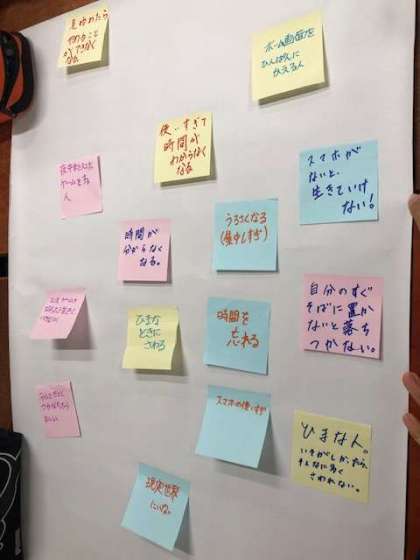 見ゆめたら
やめること
ができなく
なる
ホーム画面を
ひんぱんに
かえる人
使いすぎて
時間が
わからなく
なる
ゲームをする
人
スマホが
ないと、
生きていけ
ない!
時間が
分からなく
なる。
うるさくなる
(集中しすぎ)
ひまな
ときに
さわる
時間を
忘れる
自分のすぐ
そばに置か
ないと落ち
つかない。
スマホの使いすぎ
ひまな人。
いそがしかったら、
そんなに多く
さわれない。
現実世界
にいない